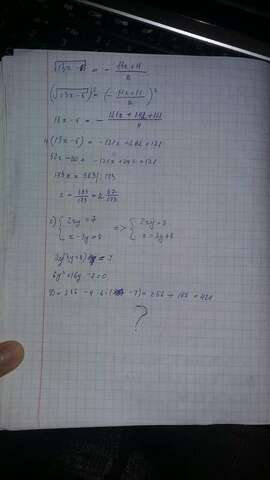 √13x - 5 = - 11x+11/2
(√13x-5)² = (- 11x+11/2)²
13x - 5 = - 121x + 242 + 121/4
4(13x-5) = -121x+242+121
52x-20 = -121x+242+121
173x =
2) { 2xy = 7
x - 3y = 8 => { 2xy = 7
x = 3y+8
2y(3y+8) = 7
6y² + 16y - 7 = 0
D = 256 - 4 · 6 · (-7) = 256 + 168 = 424
?